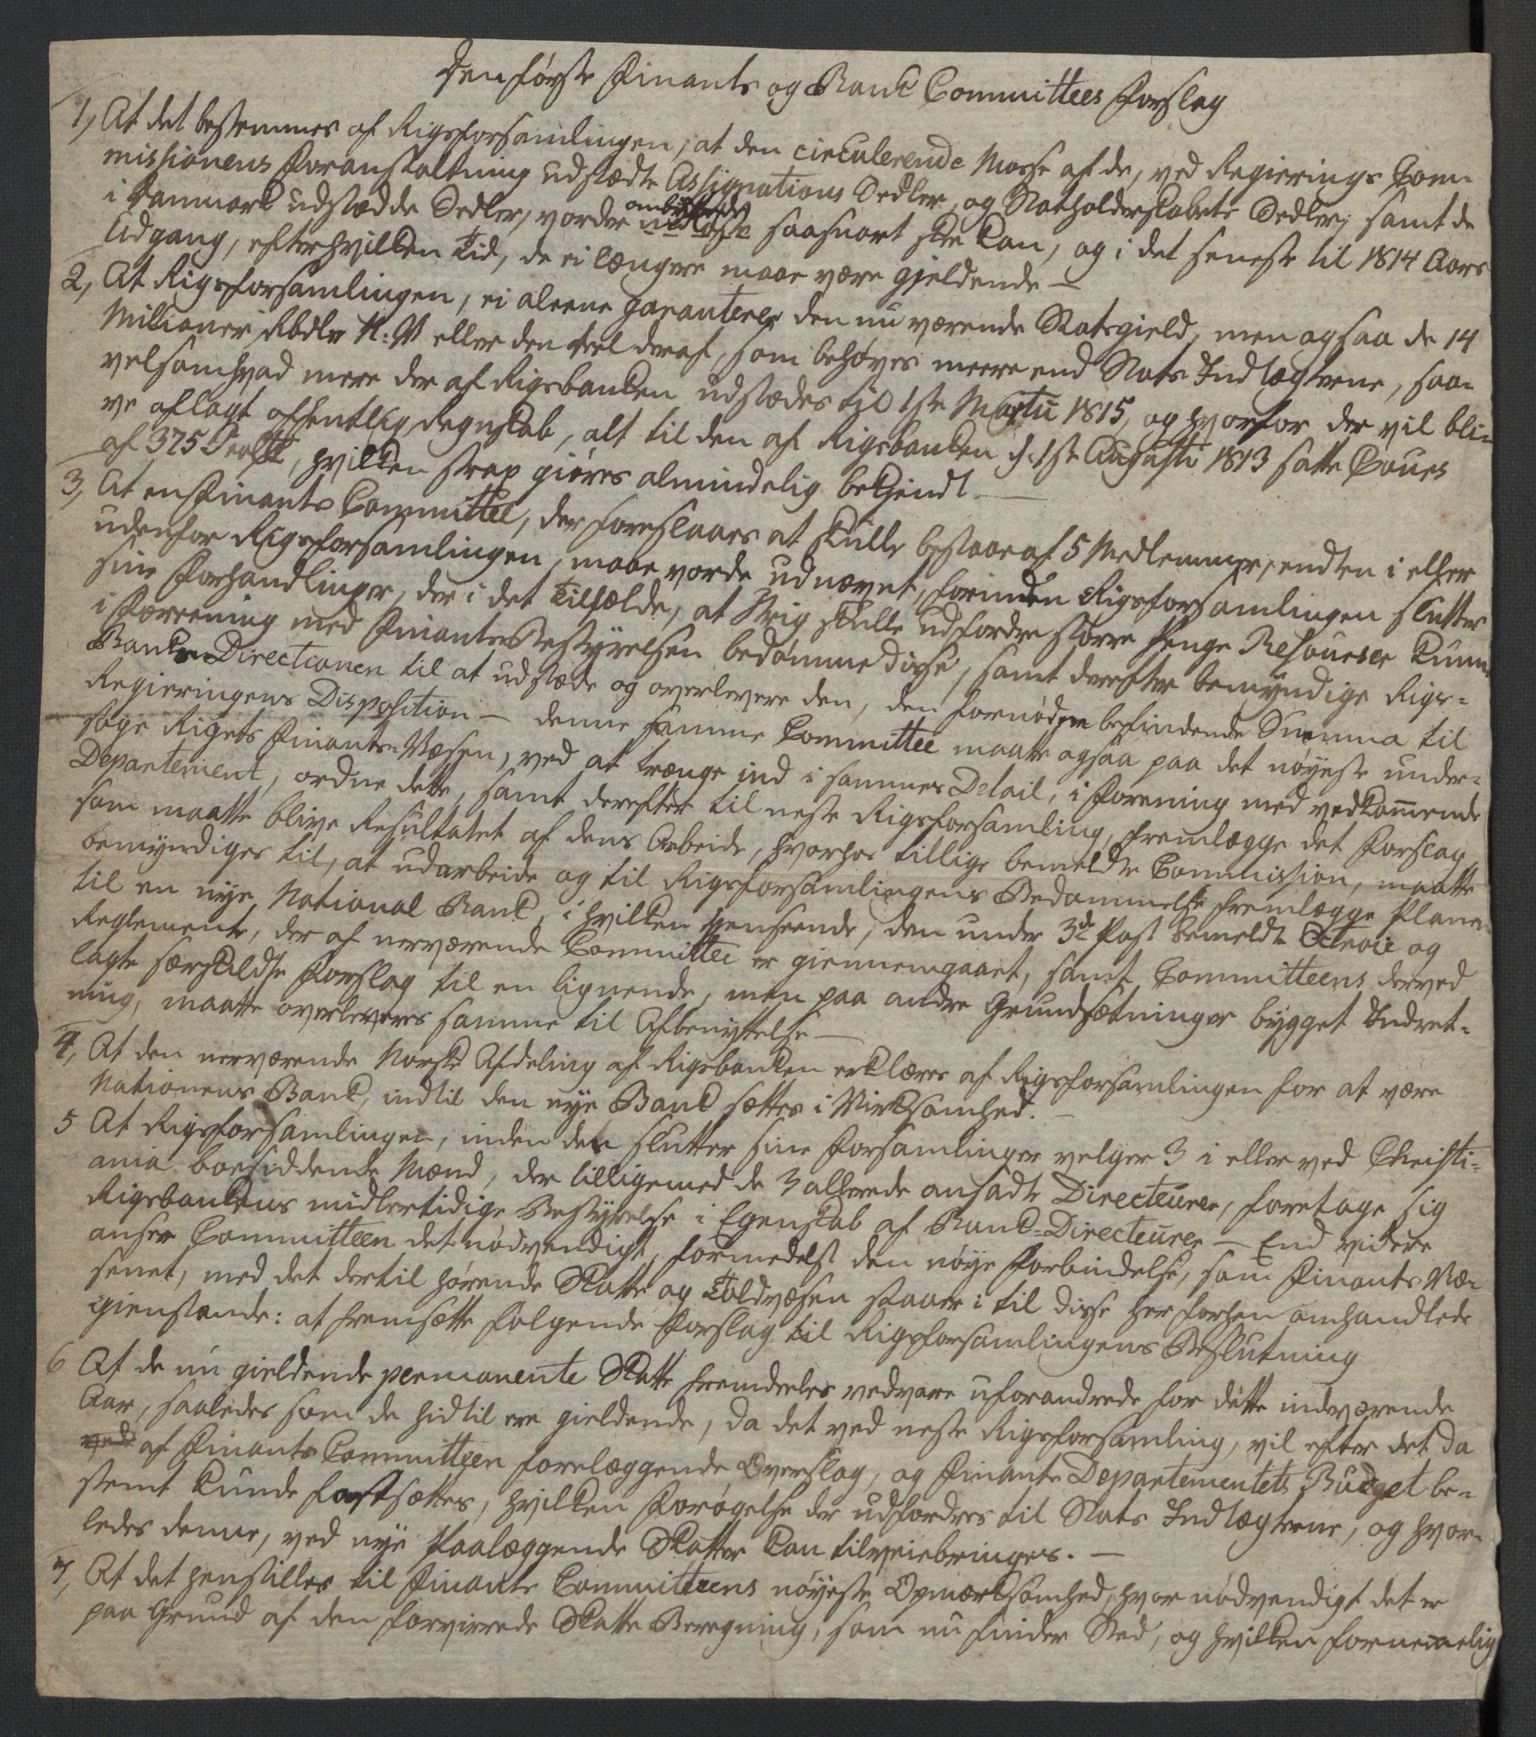 Den første Finants og Bank Committees Forslag
1, At det bestemmes af Rigsforsamlingen, at den circulerende Masse af de, ved Regierings Com-
missionens Foranstaltning udstædte Assignations Sedler, og Statholderskabets Sedler, samt de
i Danmark udstædde Sedler, vorder ombyttede saasnart skee kan, og i det seneste til 1814 Aars
Udgang, efter hvilken Tid, de ei længere maae være gjeldende —
2, At Rigsforsamlingen, ei aleene garanterer den nu værende Statsgield, men ogsaa de 14
Millioner Rbdlr N: V eller den Deel deraf, som behøves meere end Stats Indtægterne, saa-
velsom hvad mere der af Rigsbanken udstædes til 1ste Martii 1815, og hvorfor der vil bli-
ve aflagt offentlig Regnskab, alt til den af Rigsbanken d. 1ste Augusti 1813 satte Cours
af 375 , hvilken strax giøres almindelig bekiendt. —
3, At en Finants Committee, der foreslaaes at skulle bestaae af 5 Medlemmer, endten i eller
udenfor Rigsforsamlingen, maae vorde udnævnt, forinden Rigsforsamlingen slutter
sine Forhandlinger, der i det Tilfælde, at Krig skulle udfordre større Penge Resourcer kunne
i Foreening med Finants Bestyrelsen bedømme disse, samt derefter bemyndige Rigs-
Bank Directionen til at udstæde og overlevere den, den fornøden befindende Summa til
Regieringens Disposition — denne samme Committee maatte ogsaa paa det nøyeste under-
søge Rigets Finants-Væsen, ved at trænge ind i sammes Detail, i Forening med vedkom̅ende
Departement, ordne dette, samt derefter til neste Rigsforsamling, fremlægge det Forslag,
som maatte blive Resultatet af dens Arbeide, hvorhos tillige bemeldte Commission, maatte
bemyndiges til, at udarbeide og til Rigsforsamlingens Bedømmelse fremlægge Planen
til en nye National Bank, i hvilken Henseende, den under 3de Post bemeldte Octroie og
Reglement, der af nerværende Committee er giennemgaaet, samt Committeens derved
lagte særskildte Forslag til en lignende, men paa andre Grundsætninger bygget Indret-
ning, maatte overleveres samme til Afbenyttelse —
4, At den nerværende Norske Afdeling af Rigsbanken erklæres af Rigsforsamlingen for at være
Nationens Bank, indtil den nye Bank sættes i Virksomhed. —
5 At Rigsforsamlingen, inden den slutter sine Forsamlinger velger 3 i eller ved Christi-
ania boesiddende Mænd, der tilligemed de 3 allerede ansadte Directeurer, foretage sig
Rigsbankens midlertidige Bestyrelse i Egenskab af Bank-Directeurer — End videre
anser Committeen det nødvendigt, formedelst den nøye Forbindelse, som Finants Væ-
senet, med det dertil hørende Skatte og Toldvæsen staaer i til disse her forhen omhandlede
gienstande: at fremsætte følgende Forslag til Rigsforsamlingens Beslutning
6 At de nu gieldende permanente Skatte fremdeeles vedvare uforandrede for dette indværende
Aar, saaledes som de hidtil ere gieldende, da det ved neste Rigsforsamling, vil efter det da
ved af Finants Committeen forelæggende Overslag, og Finants Departementets Budget be-
stemt kunde fastsættes, hvilken Forøgelse der udfordres til Stats Indtægterne, og hvor-
ledes denne, ved nye Paalæggende Skatter kan tilveiebringes. —
7, At det henstilles til Finants Committeens nøyeste Opmærksomhed, hvor nødvendigt det er
paa Grund af den forvirrede Skatte Beregning, som nu finder Sted, og hvilken fornemmelig